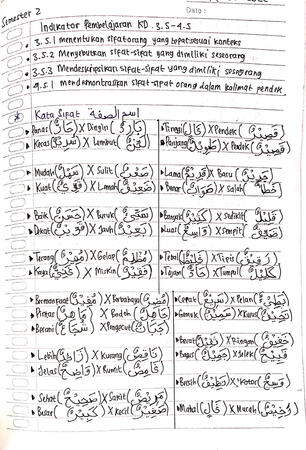 Semester 2
Dato :
Indikator Pembelajaran KD. 3.5-4.5
3.5.1 menentukan sifat orang yang tepat sesuai konteks
3.5.2 Menyebutkan sifat-sifat yang dimiliki seseorang
3.5.3 Mendeskripsikan sifat-sifat yang dimiliki seseorang
4.5.1 mendemonstrasikan sifat-sifat orang dalam kalimat pendek
* Kata Sifat اسم الصفة
Panas (حَارٌّ) X Dingin (بَارِدٌ)
Keras X Lembut
Mudah (سَهْلٌ) X Sulit (صَعْبٌ)
Kuat (قَوِيٌّ) X Lemah (ضَعِيْفٌ)
Baik (حَسَنٌ) X Buruk
Dekat (قَرِيْبٌ) X Jauh (بَعِيْدٌ)
Terang X Gelap (مُظْلِمٌ)
Kaya X Miskin (فَقِيْرٌ)
Bermanfaat (مُفِيْدٌ) X Berbahaya
Pintar (مَاهِرٌ) X Bodoh (جَاهِلٌ)
Berani (شُجَاعٌ) X Pengecut (جَبَانٌ)
Lebih (زَائِدٌ) X Kurang (نَاقِصٌ)
Jelas (وَاضِحٌ) X Rumit
Sehat (صَحِيْحٌ) X Sakit (مَرِيْضٌ)
Besar (كَبِيْرٌ) X Kecil (صَغِيْرٌ)
Tinggi (عَالٍ) X Pendek (قَصِيْرٌ)
Panjang (طَوِيْلٌ) X Pendek (قَصِيْرٌ)
Lama (قَدِيْمٌ) X Baru (جَدِيْدٌ)
Benar (صَوَابٌ) X Salah (خَطَأٌ)
Banyak (كَثِيْرٌ) X Sedikit (قَلِيْلٌ)
Luas (وَاسِعٌ) X Sempit (ضَيِّقٌ)
Tebal X Tipis
Tajam (حَادٌّ) X Tumpul (كَلِيْلٌ)
Cepat (سَرِيْعٌ) X Pelan (بَطِيْئٌ)
Gemuk (سَمِيْنٌ) X Kurus
Berat (ثَقِيْلٌ) X Ringan (خَفِيْفٌ)
Bagus (جَمِيْلٌ) X Jelek (قَبِيْحٌ)
Bersih (نَظِيْفٌ) X Kotor (وَسِخٌ)
Mahal (غَالٍ) X Murah (رَخِيْصٌ)